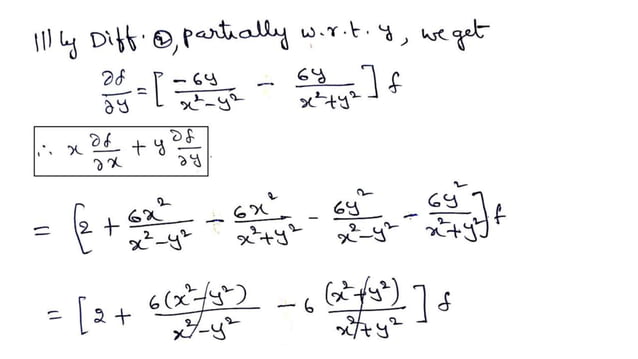 |||ly Diff. ②, partially w.r.t. y, we get
∂f/∂y = [ -6y/(x²-y²) - 6y/(x²+y²) ] f
∴ x ∂f/∂x + y ∂f/∂y
= [2 + 6x²/(x²-y²) - 6x²/(x²+y²) - 6y²/(x²-y²) - 6y²/(x²+y²)] f
= [2 + 6(x²-y²)/(x²-y²) - 6 (x²+y²)/(x²+y²)] f